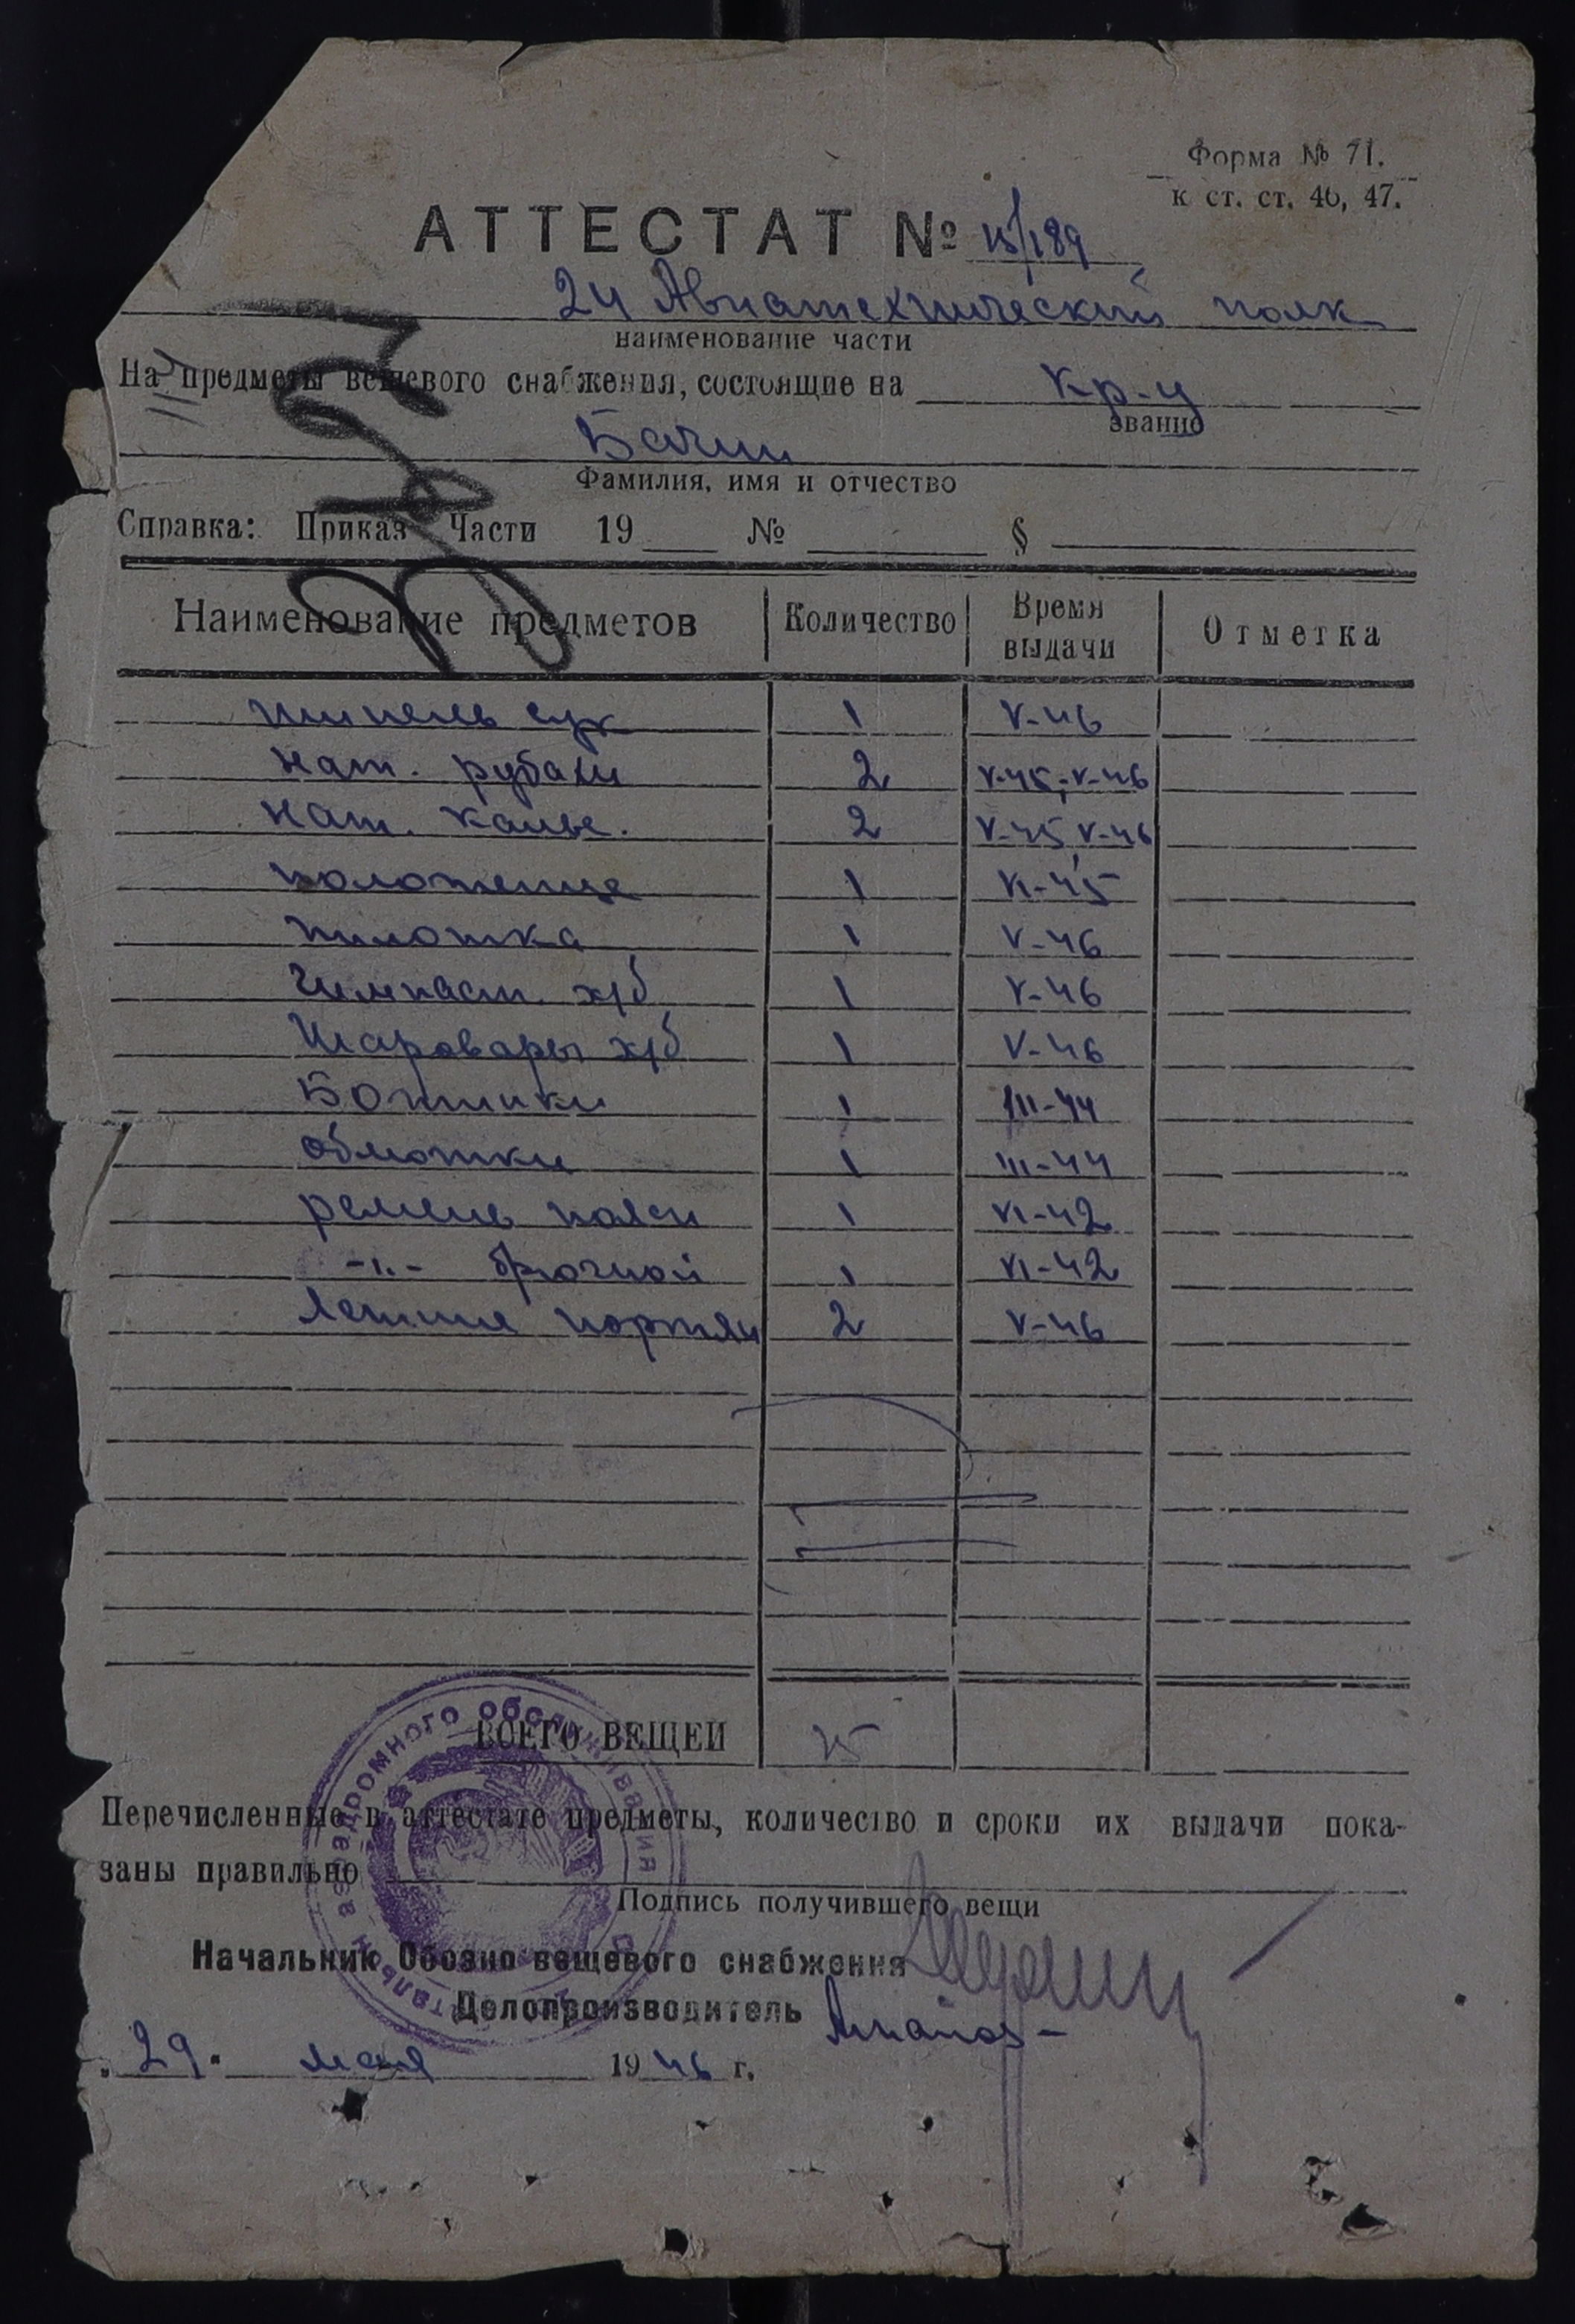 Форма № 71.
к ст. ст. 46, 47.
АТТЕСТАТ № 15/189
24 Авиатехнический полк
наименование части
На предметы вещевого снабжения, состоящие на кр-ц
звание
Фамилия, имя и отчество
Справка: Приказ Части 19 № §
Наименование предметов Количество Время выдачи Отметка
шинель сук 1 V-46
нат. рубахи 2 V-45; V-46
нат. кальс. 2 V-45, V-46
полотенце 1 VI-45
пилотка 1 V-46
Гимнаст. х/б 1 V-46
Шаровары х/б 1 V-46
Ботинки 1 III-44
обмотки 1 III-44
ремень поясн 1 VI-42
-"- брючной 1 VI-42
Летние портян 2 V-46
ВСЕГО ВЕЩЕЙ 15
Перечисленные в аттестате предметы, количество и сроки их выдачи пока-
заны правильно
Подпись получившего вещи
Начальник Обозно-вещевого снабжения
Делопроизводитель
"29" мая 1946 г.
аэродромного обслуживания